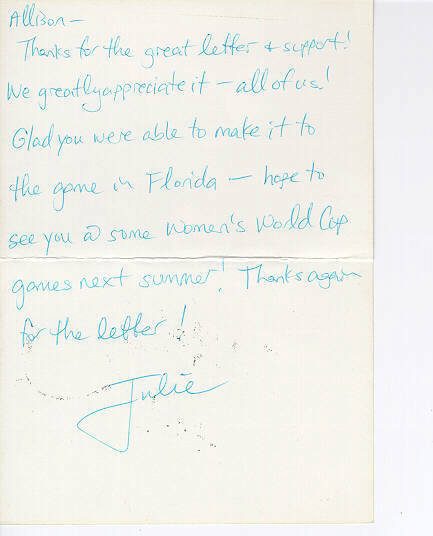 Allison-
Thanks for the great letter & support!
We greatly appreciate it - all of us!
Glad you were able to make it to
the game in Florida - hope to
see you @ some Women's World Cup
games next summer! Thanks again
for the letter!
Julie